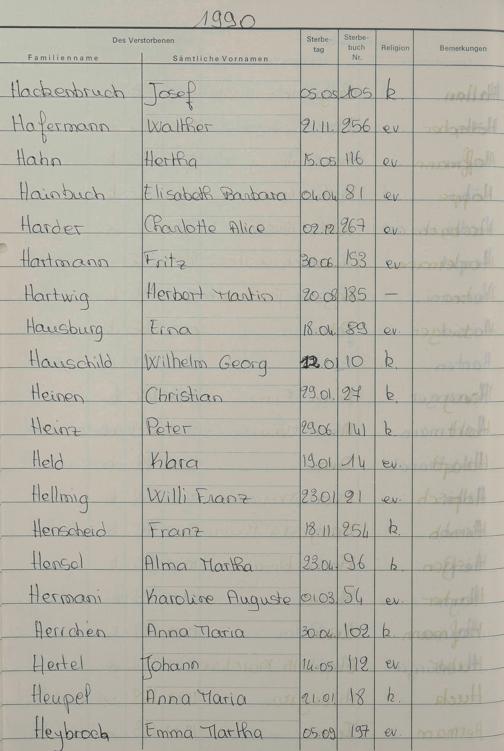 1990
Des Verstorbenen Sterbe- Sterbe- Religion Bemerkungen
Familienname Sämtliche Vornamen tag buch Nr.
Hackenbruch Josef 05.05. 105 k.
Hafermann Walther 21.11. 256 ev
Hahn Hertha 15.05 116 ev
Hainbuch Elisabeth Barbara 04.04. 81 ev
Harder Charlotte Alice 02.12. 267 ev
Hartmann Fritz 30.06. 153 ev
Hartwig Herbert Martin 20.08 185 —
Hausburg Erna 18.04. 89 ev.
Hauschild Wilhelm Georg 12.01 10 k.
Heinen Christian 29.01. 27 k.
Heinz Peter 29.06. 141 k.
Held Klara 19.01. 14 ev.
Hellmig Willi Franz 23.01. 21 ev.
Henscheid Franz 18.11. 254 k.
Hensel Alma Martha 23.04. 96 k.
Hermani Karoline Auguste 01.03. 54 ev.
Herrchen Anna Maria 30.04. 102 k
Hertel Johann 14.05. 112 ev
Heupel Anna Maria 21.01. 18 k.
Heybroch Emma Martha 05.09. 197 ev.